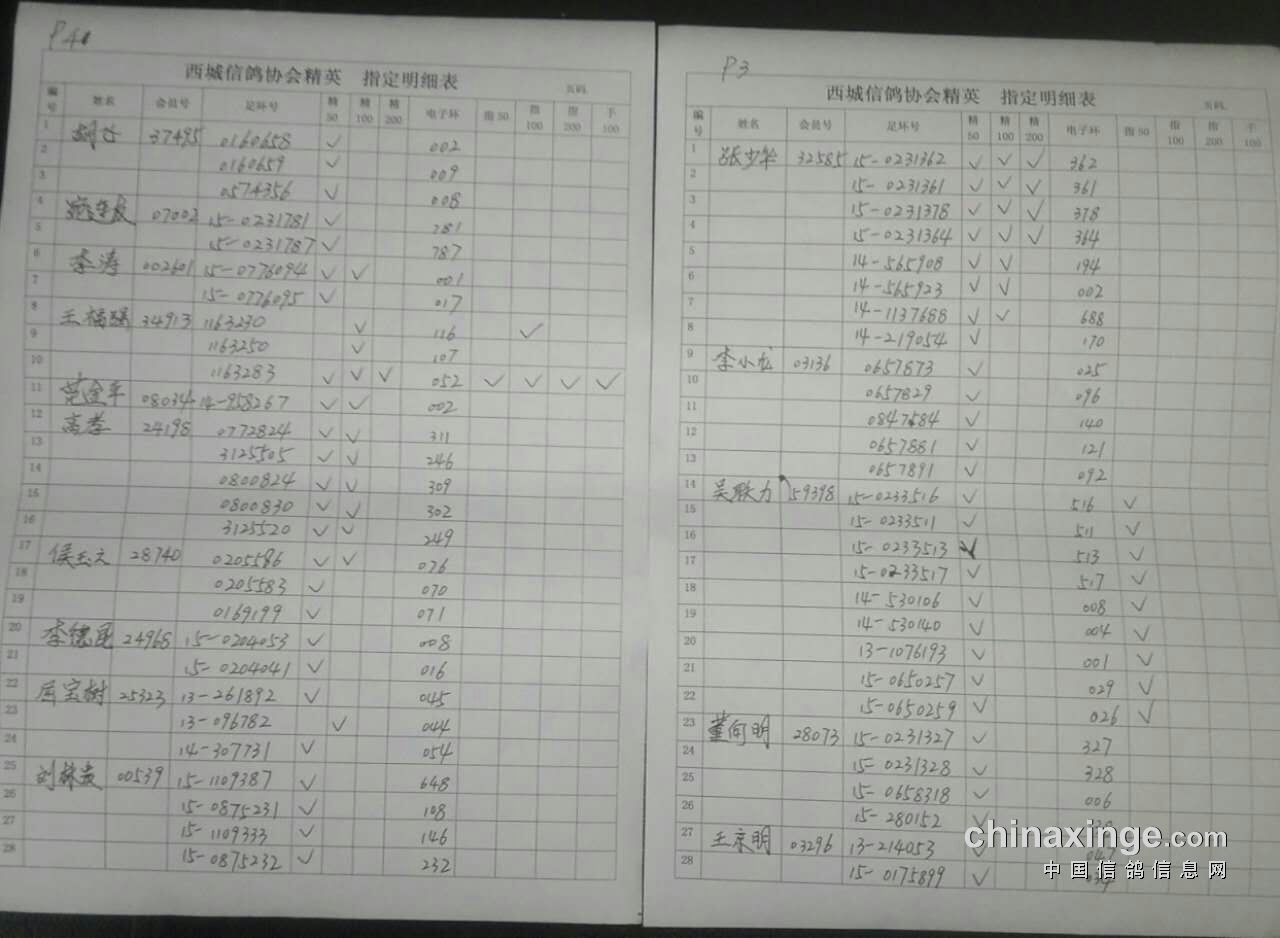 P4
西城信鸽协会精英 指定明细表
页码
编号 姓名 会员号 足环号 精50 精100 精200 电子环 指50 指100 指200 手100
1 37495 0160658 ✓ 002
2 0160659 ✓ 009
3 0574356 ✓ 008
4 07002 15-0231781 ✓ 781
5 15-0231787 ✓ 787
6 李涛 002601 15-0776094 ✓ ✓ 001
7 15-0776095 ✓ 017
8 王福强 34913 1163230 ✓ 116 ✓
9 1163250 ✓ 107
10 1163283 ✓ ✓ ✓ 052 ✓ ✓ ✓ ✓
11 范金平 08034 14-958267 ✓ ✓ 002
12 高孝 24198 0772824 ✓ ✓ 311
13 3125505 ✓ ✓ 246
14 0800824 ✓ ✓ 309
15 0800830 ✓ ✓ 302
16 3125520 ✓ ✓ 249
17 侯玉文 28740 0205586 ✓ ✓ 076
18 0205583 ✓ 070
19 0169199 ✓ 071
20 李德昆 24968 15-0204053 ✓ 008
21 15-0204041 ✓ 016
22 屈宝树 25323 13-261892 ✓ 045
23 13-096782 ✓ 044
24 14-307731 ✓ 054
25 刘林贵 00539 15-1109387 ✓ 648
26 15-0875231 ✓ 108
27 15-1109333 ✓ 146
28 15-0875232 ✓ 232
P3
西城信鸽协会精英 指定明细表
页码
编号 姓名 会员号 足环号 精50 精100 精200 电子环 指50 指100 指200 手100
1 张少华 32585 15-0231362 ✓ ✓ ✓ 362
2 15-0231361 ✓ ✓ ✓ 361
3 15-0231378 ✓ ✓ ✓ 378
4 15-0231364 ✓ ✓ ✓ 364
5 14-565908 ✓ ✓ 194
6 14-565923 ✓ ✓ 002
7 14-1137688 ✓ ✓ 688
8 14-219054 ✓ 170
9 李小龙 03136 0657873 ✓ 025
10 0657829 ✓ 096
11 0847584 ✓ 140
12 0657881 ✓ 121
13 0657891 ✓ 092
14 吴耿力 59398 15-0233516 ✓ 516 ✓
15 15-0233511 ✓ 511 ✓
16 15-0233513 ✓ 513 ✓
17 15-0233517 ✓ 517 ✓
18 14-530106 ✓ 008 ✓
19 14-530140 ✓ 004 ✓
20 13-1076193 ✓ 001 ✓
21 15-0650257 ✓ 029 ✓
22 15-0650259 ✓ 026 ✓
23 董向明 28073 15-0231327 ✓ 327
24 15-0231328 ✓ 328
25 15-0658318 ✓ 006
26 15-280152 ✓
27 王京明 03296 13-214053 ✓
28 15-0175899 ✓
chinaxinge.com
中国信鸽信息网